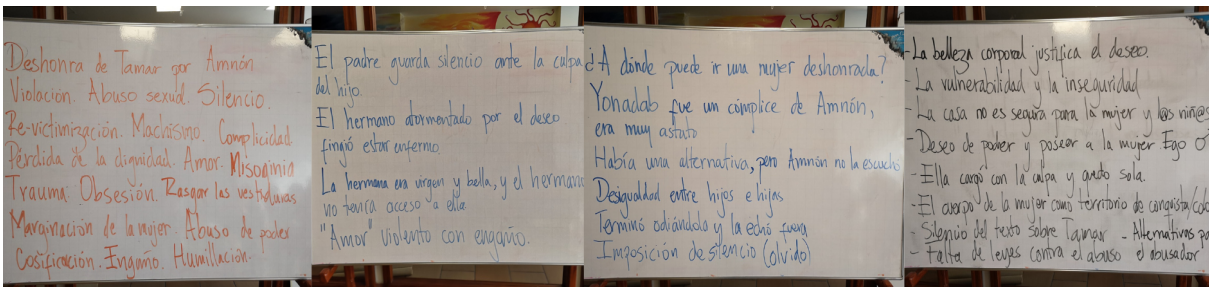 Deshonra de Tamar por Amnón
Violación. Abuso sexual. Silencio.
Re-victimización. Machismo. Complicidad.
Pérdida de la dignidad. Amor. Misoginia
Trauma. Obsesión. Rasgar las vestiduras
Marginación de la mujer. Abuso de poder
Cosificación. Engaño. Humillación.
El padre guarda silencio ante la culpa
del hijo.
El hermano atormentado por el deseo
fingió estar enfermo.
La hermana era virgen y bella, y el hermano
no tenía acceso a ella
"Amor" violento con engaño.
¿A dónde puede ir una mujer deshonrada?
Yonadab fue un cómplice de Amnón,
era muy astuto
Había una alternativa, pero Amnón no la escuchó
Desigualdad entre hijos e hijas
Terminó odiándola y la echó fuera
Imposición de silencio (olvido)
- La belleza corporal justifica el deseo.
- La vulnerabilidad y la inseguridad
- La casa no es segura para la mujer y l@s niñ@s
- Deseo de poder y poseer a la mujer Ego
- Ella cargó con la culpa y quedó sola.
- El cuerpo de la mujer como territorio de conquista/
- Silencio del texto sobre Tamar - Alternativas
- Falta de leyes contra el abuso el abusador